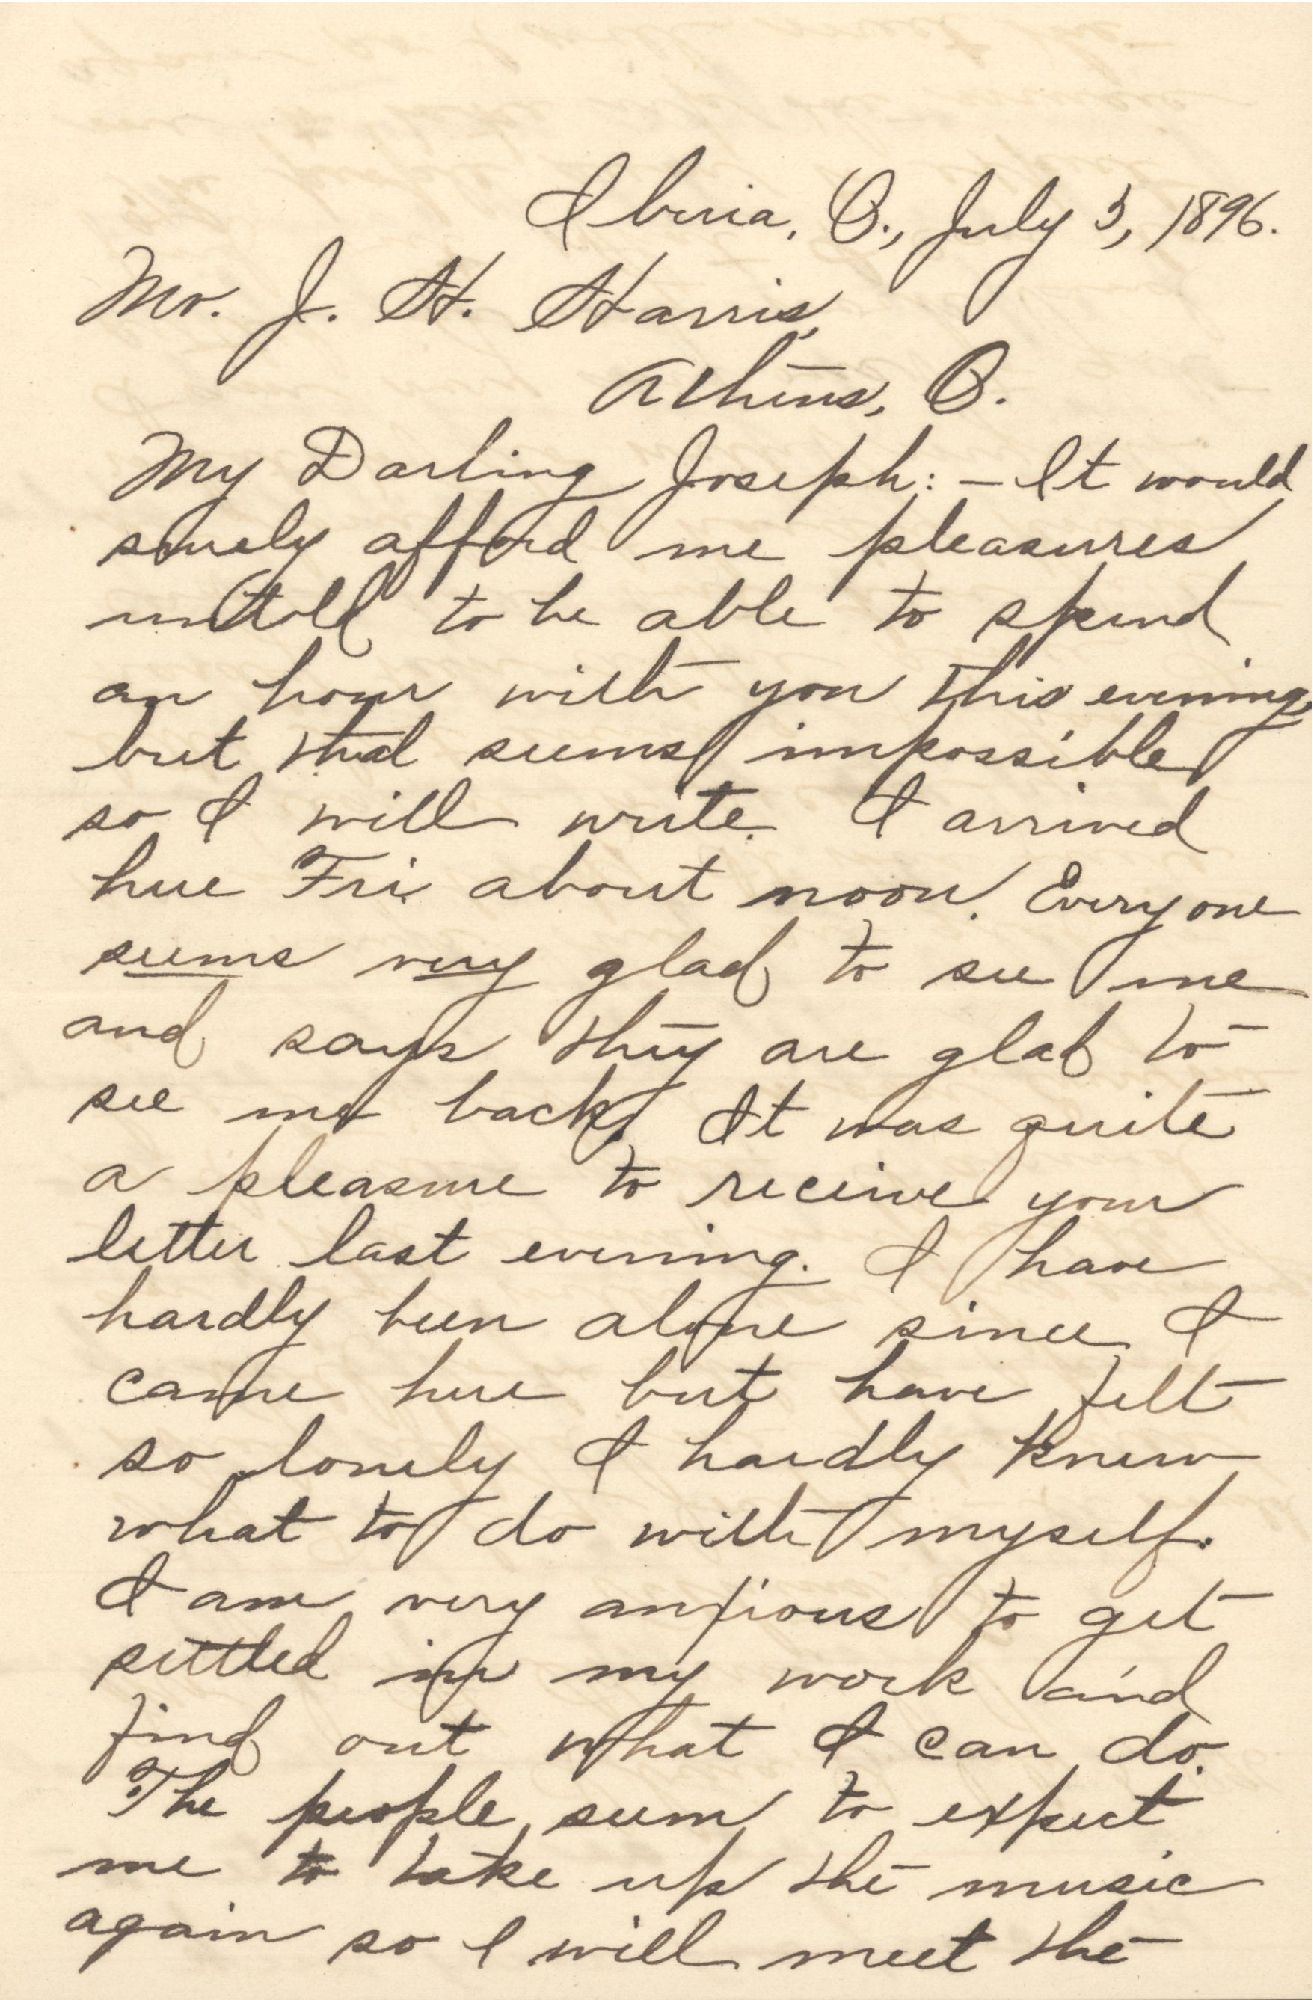 Iberia, O., July 5, 1896.
Mr. J. H. Harris,
Athens, O.
My Darling Joseph: - It would
surely afford me pleasures
untold to be able to spend
an hour with you this evening,
but that seems impossible
so I will write. I arrived
here Fri. about noon. Everyone
seems very glad to see me
and says they are glad to
see me back. It was quite
a pleasure to receive your
letter last evening. I have
hardly been alone since I
came here but have felt
so lonely I hardly knew
what to do with myself.
I am very anxious to get
settled in my work and
find out what I can do.
The people seem to expect
me to take up the music
again so I will meet the